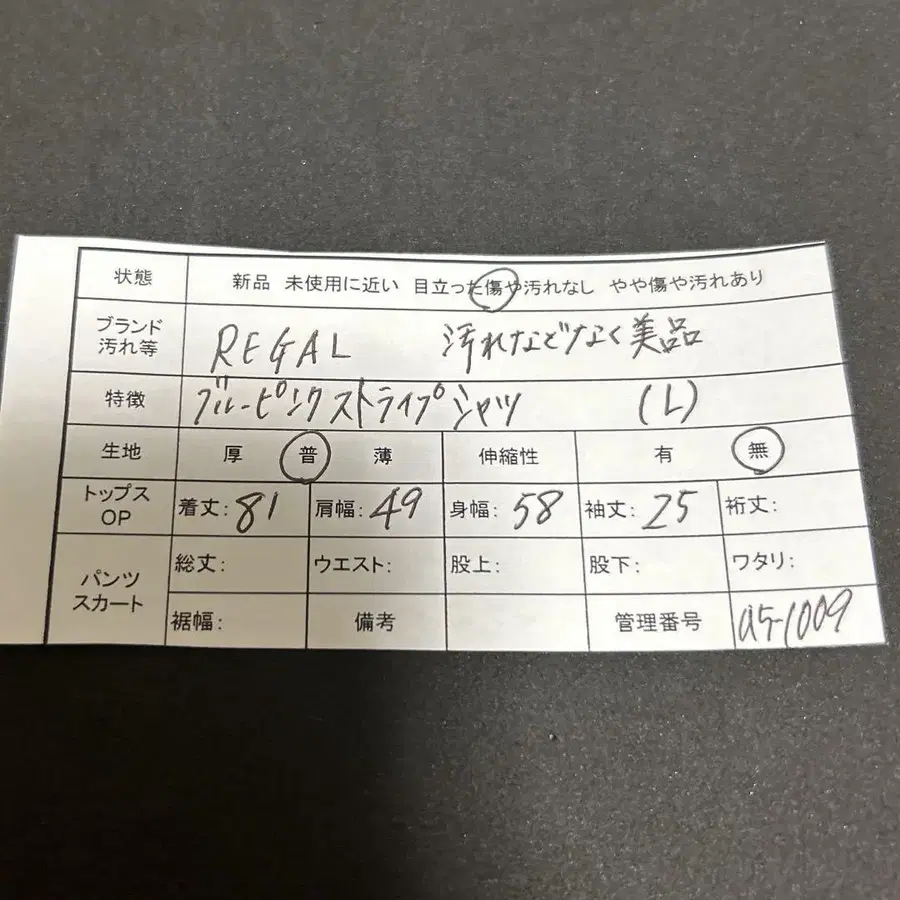 状態 新品 未使用に近い 目立った傷や汚れなし やや傷や汚れあり
ブランド 汚れ等 REGAL 汚れなどなく美品
特徴 ブルーピンクストライプシャツ (L)
生地 厚 普 薄 伸縮性 有 無
トップス OP 着丈:81 肩幅:49 身幅:58 袖丈:25 裄丈:
パンツ スカート 総丈: ウエスト: 股上: 股下: ワタリ:
裾幅: 備考 管理番号 a5-1009